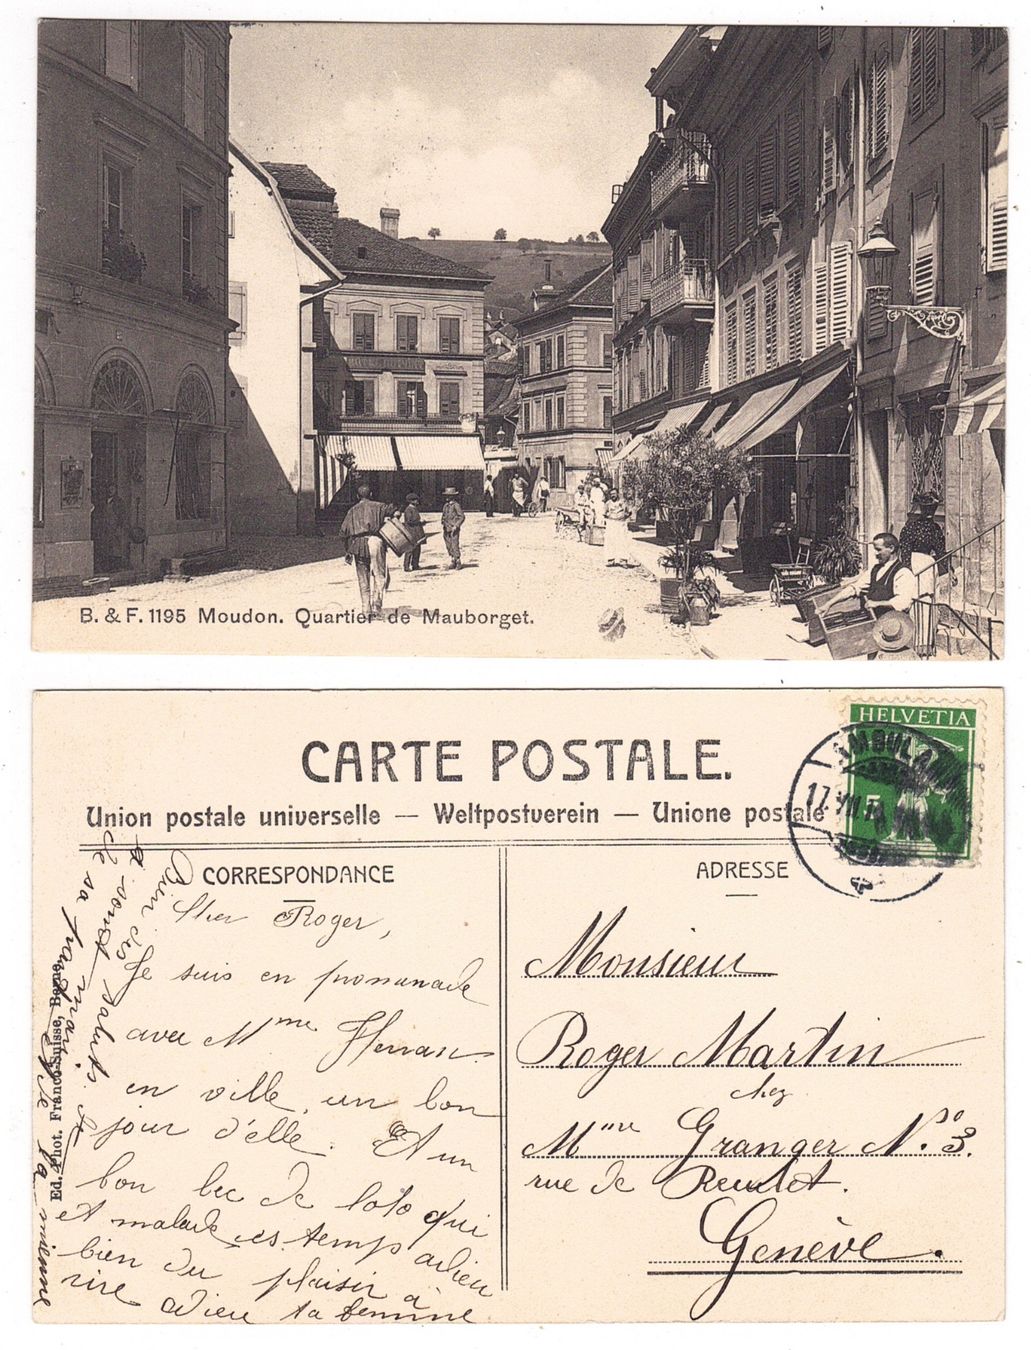 B. & F. 1195 Moudon. Quartier de Mauborget.
CARTE POSTALE.
Union postale universelle — Weltpostverein — Unione postale
HELVETIA
5
AMBULANT
17.VII
CORRESPONDANCE
Cher Roger,
Je suis en promenade
avec Mme
en ville, un bon
jour d'elle. Et un
bon bec de toto qui
et malade ces temps adieu
bien du plaisir à
rire adieu ta femme
Bien des saluts de
de sa
et de la mienne
Ed. Phot. Franco-Suisse, Berne
ADRESSE
Monsieur
Roger Martin
chez
Mme Granger No. 3.
rue de
Genève.